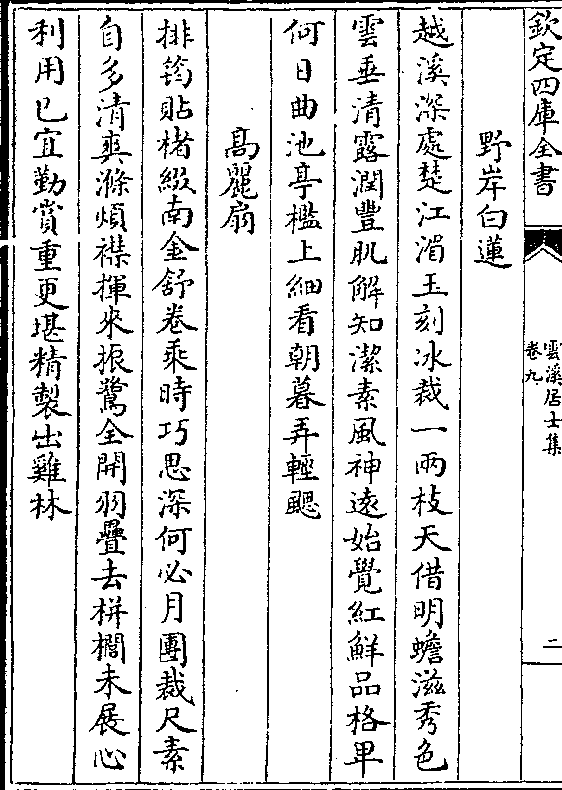 欽定四庫全書
雲溪居士集
卷九
二
野岸白蓮
越溪深處楚江湄玉刻冰裁一兩枝天借明蟾滋秀色
雲垂清露潤豐肌解知潔素風神逺始覺紅鮮品格卑
何日曲池亭檻上細看朝暮弄輕颸
髙麗扇
排筠貼楮綴南金舒卷乘時巧思深何必月團裁尺素
自多清爽滌煩襟揮來振鷺全開羽疊去栟櫚未展心
利用已宜勤賞重更堪精製出雞林